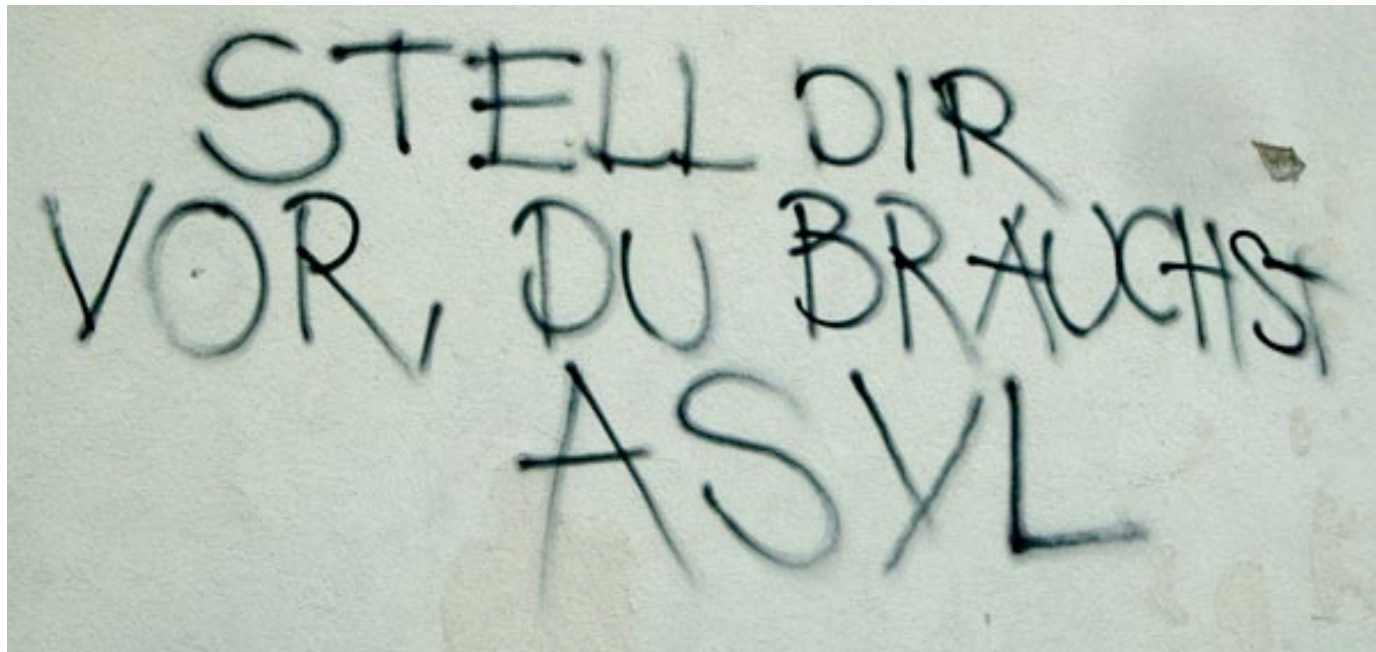 STELL DIR
VOR, DU BRAUCHST
ASYL